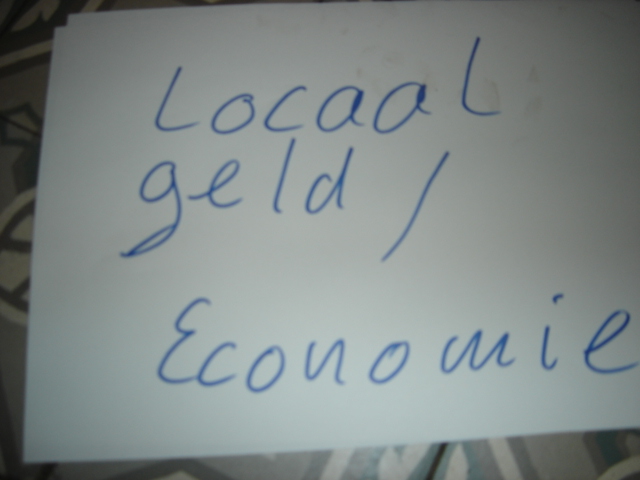 Locaal
geld /
Economie